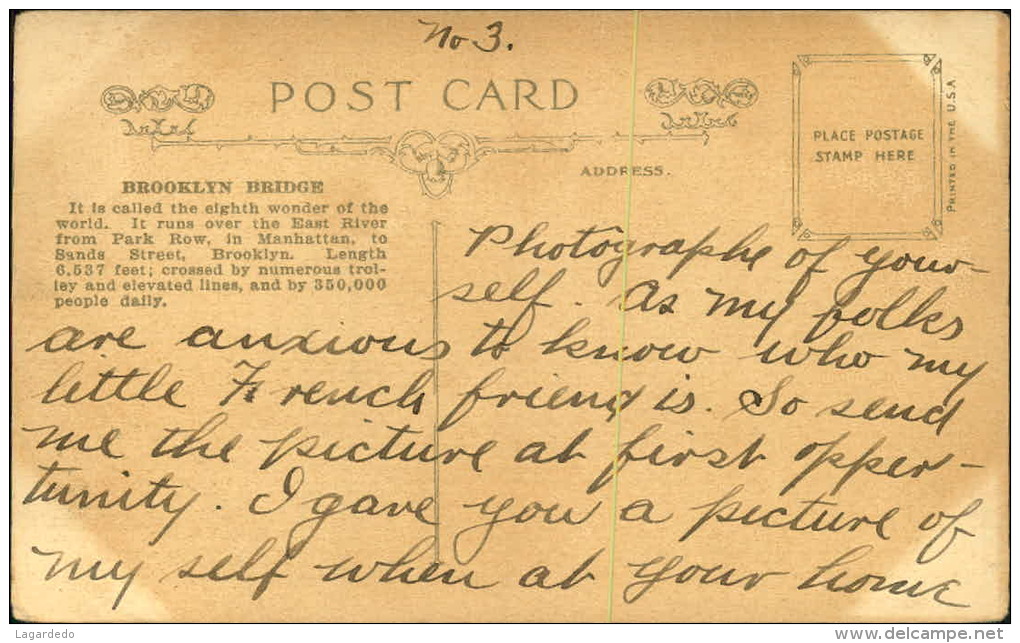 No 3.
POST CARD
PLACE POSTAGE
STAMP HERE
PRINTED IN THE U.S.A
ADDRESS.
BROOKLYN BRIDGE
It is called the eighth wonder of the
world. It runs over the East River
from Park Row, in Manhattan, to
Sands Street, Brooklyn. Length
6,537 feet; crossed by numerous trol-
ley and elevated lines, and by 350,000
people daily.
Photographe of your-
self. As my folks
are anxious to know who my
little French friend is. So send
me the picture at first opper-
tunity. I gave you a picture of
my self when at your home
Lagardedo
www.delcampe.net